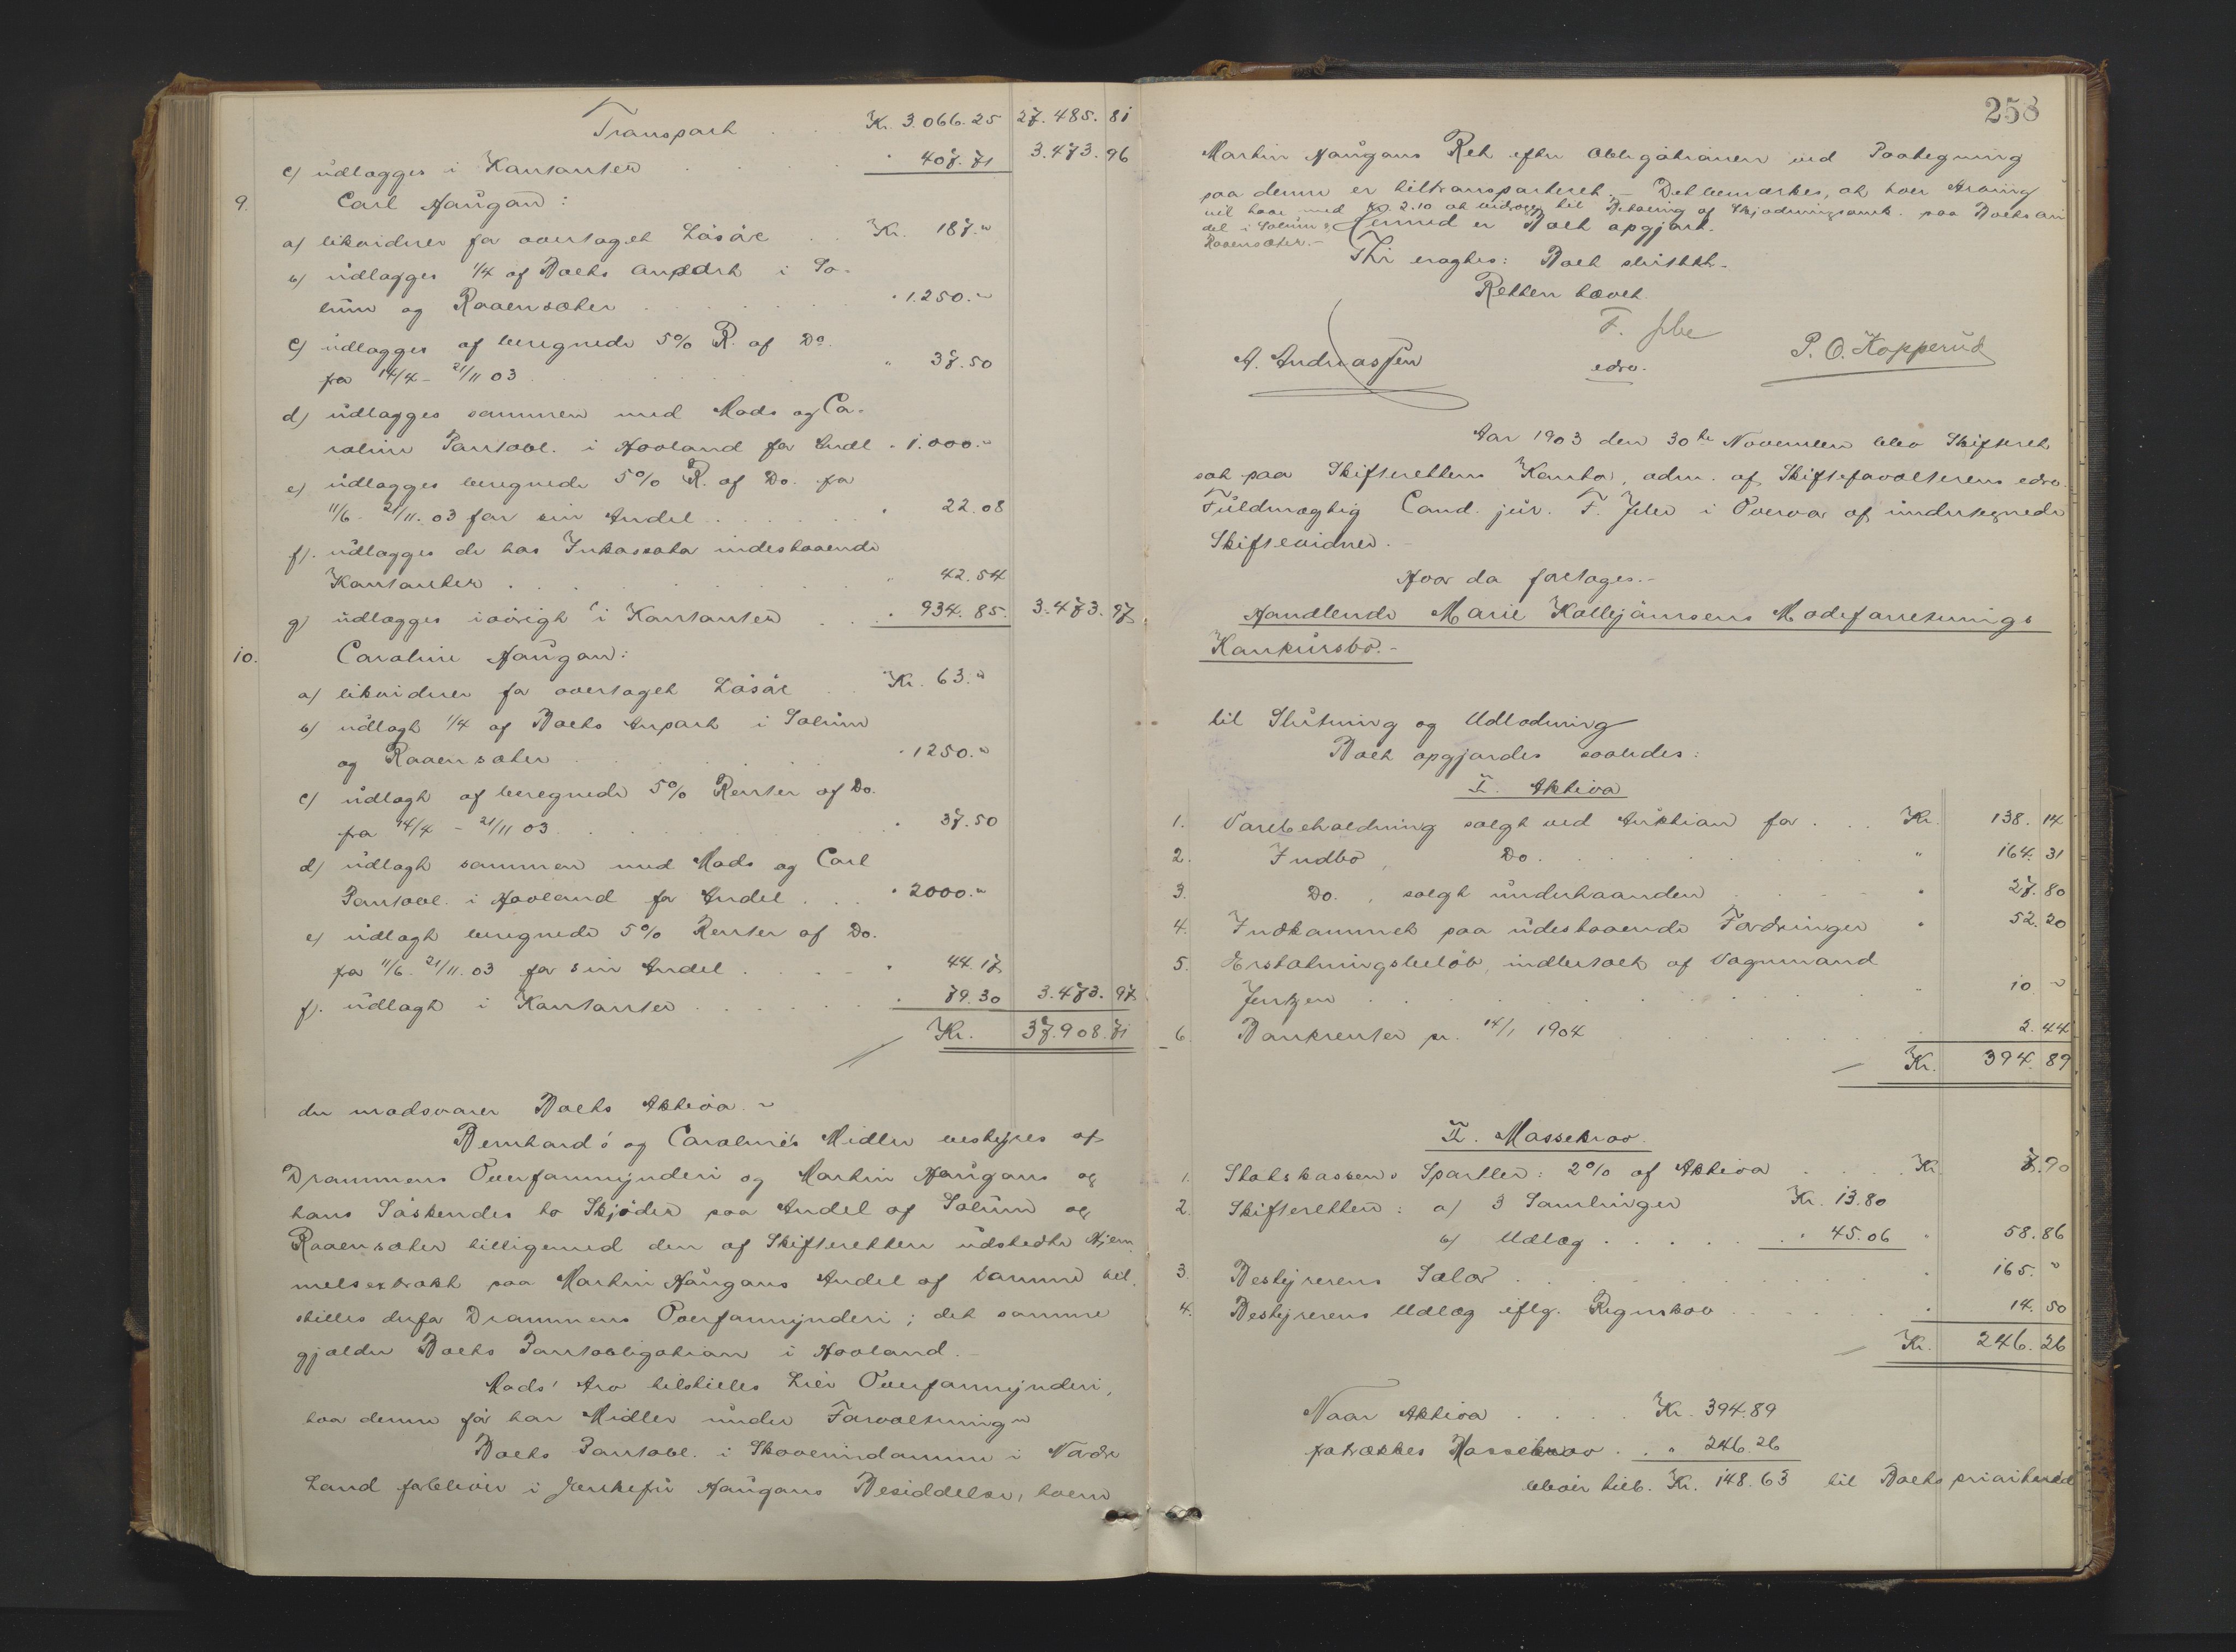 Transport . . Kr. 3.066.25 27.485.81
e) udlægges i Kontanter . . . " 407.71 3.473.96
9. Carl Haugan:
a) likviderer for overtaget Løsøre . . Kr. 187.-
b) udlægges 1/4 af Boets Anpart i So-
lum og Raaensæter . . . " 1.250.-
c) udlægges af beregnede 5% R. af Do.
fra 14/4 - 21/11 03 . . . " 37.50
d) udlægges sammen med Mads og Ca-
roline Pantobl. i Hovland for Andel " 1.000.-
e) udlægges beregnede 5% R. af Do. fra
11/6 - 21/11. 03 for sin Andel . . . " 22.08
f). udlægges de hos Inkassator indestaaende
Kontanter . . . " 42.54
g) udlægges iøvrigt i Kontanter . . . " 934.85. 3.473.97
10. Caroline Haugan:
a) likviderer for overtaget Løsøre . . Kr. 63.-
b) udlagt 1/4 af Boets Anpart i Solum
og Raaensæter . . . " 1250.-
c) udlagt af beregnede 5% Renter af Do.
fra 14/4 - 21/11 03 . . . " 37.50
d) udlagt sammen med Mads og Carl
Pantobl. i Hovland for Andel . . . " 2000.-
e) udlagt beregnede 5% Renter af Do.
fra 11/6 - 21/11. 03 for sin Andel . . . " 44.17
f). udlagt i Kontanter . . . " 79.30 3.473.97
Kr. 37.908.71
der modsvarer Boets Aktiva.-
Bernhard's og Caroline's Midler bestyres af
Drammens Overformynderi og Martin Haugans og
hans Søskendes to Skjøder paa Andel af Solum og
Raaensæter tilligemed den af Skifteretten udstedte Hjem-
melsextrakt paa Martin Haugans Andel af samme til-
stilles derfor Drammens Overformynderi; det samme
gjælder Boets Pantobligation i Hovland.-
Mads' Arv tilstilles Lier Overformynderi,
hvor denne før har Midler under Forvaltning.-
Boets Pantobl. i Skoveneiendommen i Nordre
Land forbliver i Enkefru Haugans Besiddelse, hvem
258
Martin Haugans Ret efter Obligationen ved Paategning
paa denne er tiltransporteret.- Det bemærkes, at hver Arving
vil have med Kr. 2.10 at bidrage til Betaling af Skjødningsomk. paa Boets An-
del i Solum & Hermed er Boet opgjort.
Raaensæter.-
Thi eragtes: Boet sluttet.-
Retten hævet.
F. Ibe
A. Andreassen edsv. P. O. Kopperud
Aar 1903 den 30te November blev Skifteret
sat paa Skifterettens Kontor, adm. af Skifteforvalterens edsv.
Fuldmægtig Cand. jur. F. Ibe i Overvær af undertegnede
Skiftevidner.-
Hvor da foretages.-
Handlende Marie Kolbjørnsens Modeforretnings
Konkursbo.-
til Slutning og Udlodning
Boet opgjordes saaledes:
I. Aktiva
1. Varebeholdning solgt ved Auktion for . . . Kr. 138.14
2. Indbo, Do. . . . " 164.31
3. Do., solgt underhaanden . . . " 27.80
4. Indkommet paa udestaaende Fordringer " 52.20
5. Erstatningsbeløb, indbetalt af Vognmand
Jentzen . . . " 10 -
6. Bankrenter pr. 14/1 1904 . . . " 2.44
Kr. 394.89
II. Massekrav.
1. Statskassens Sportler: 2% af Aktiva . . . Kr. 7.90
2. Skifteretten: a) 3 Samlinger Kr. 13.80
b) Udlæg . . . " 45.06 " 58.86
3. Bestyrerens Salær . . . " 165.-
4. Bestyrerens Udlæg iflg. Regnskab . . . " 14.50
Kr. 246.26
Naar Aktiva . . . Kr. 394.89
fratrækkes Massekrav . . " 246.26
bliver tilb. Kr. 148.63 til Boets prioriterede